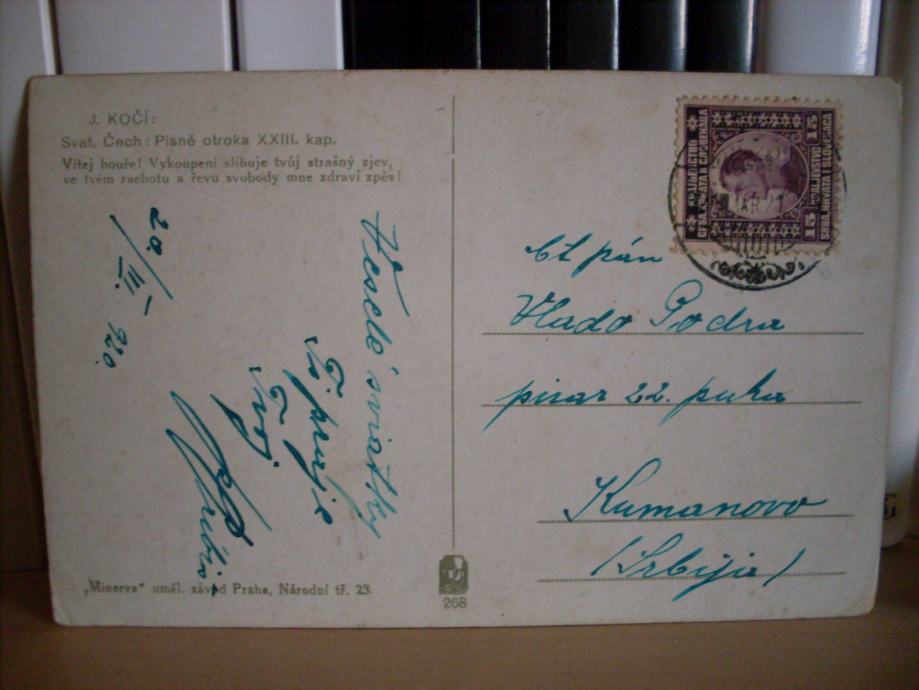 J. KOČÍ:
Svat. Čech: Písně otroka XXIII. kap.
Vítej bouře! Vykoupení slibuje tvůj strašný zjev,
ve tvém rachotu a řevu svobody mne zdraví zpěv!
20/III. 920.
Veselé sviatky
Ti praje
Tvoj
ct pán
Vlado Podra
pisar 22. puka
Kumanovo
(Srbija)
КРАЉЕВСТВО
СРБА, ХРВАТА И СЛОВЕНАЦА
15
15
KRALJEVSTVO
SRBA, HRVATA I SLOVENACA
„Minerva" uměl. závod Praha, Národní tř. 23
268